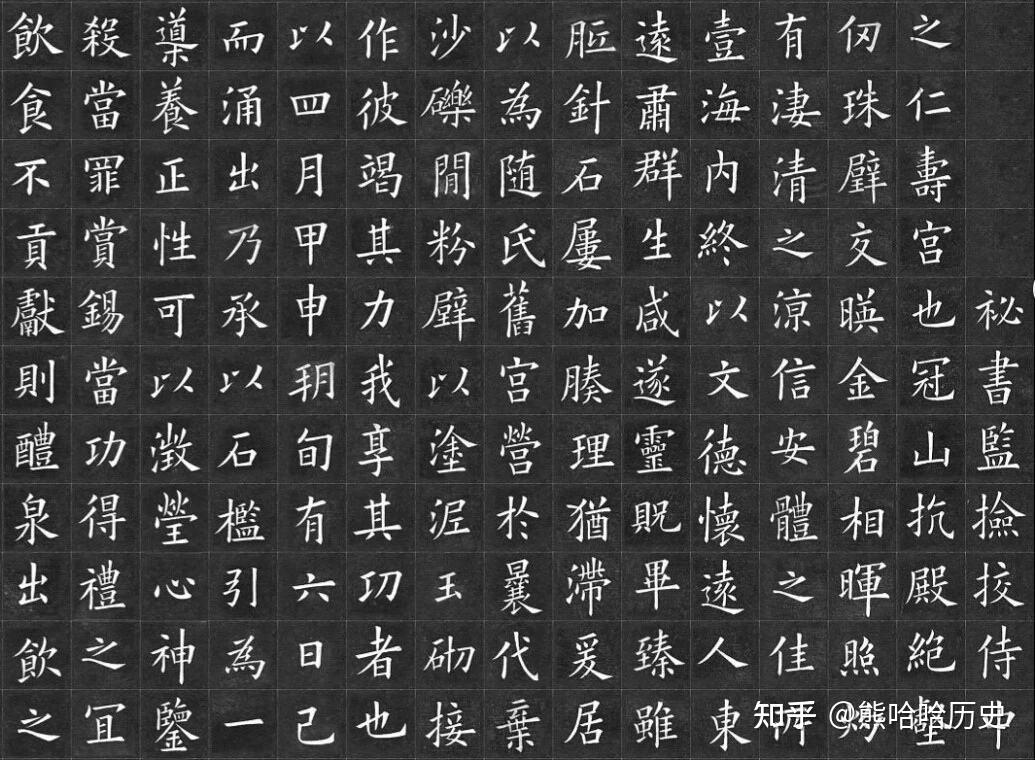 祕書監撿挍侍中
之仁壽宮也冠山抗殿絕壑
仞珠壁交暎金碧相暉照灼
有淒清之涼信安體之佳所
壹海內終以文德懷遠人東
遠肅群生咸遂靈貺畢臻雖
胝針石屢加腠理猶滯爰居
以為隨氏舊宮營於曩代棄
沙礫閒粉壁以塗泥玉砌接
作彼竭其力我享其功者也
以四月甲申朔旬有六日己
而涌出乃承以石檻引為一
導養正性可以澂瑩心神鑒
殺當罪賞錫當功得禮之宜
飲食不貢獻則醴泉出飲之
知乎 @熊哈哈历史